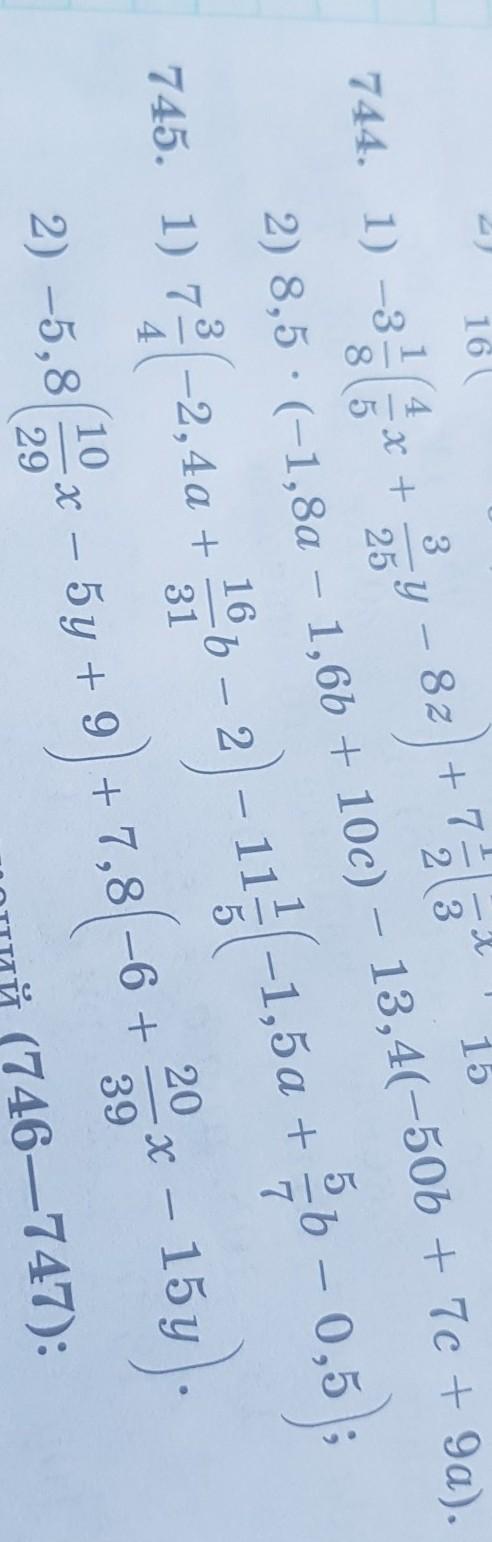 2) 16(
744. 1) −3 1/8 (4/5 x + 3/25 y − 8z) + 7 1/2 ( /3 x 15
2) 8,5 · (−1,8a − 1,6b + 10c) − 13,4(−50b + 7c + 9a).
745. 1) 7 3/4 (−2,4a + 16/31 b − 2) − 11 1/5 (−1,5a + 5/7 b − 0,5);
2) −5,8(10/29 x − 5y + 9) + 7,8(−6 + 20/39 x − 15y).
(746—747):